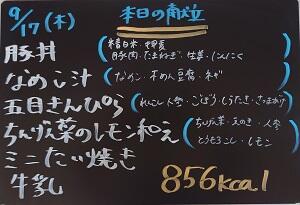 9/17(木) 本日の献立
豚丼 (精白米・押麦
豚肉・たまねぎ・生姜・にんにく)
なめこ汁 (なめこ・木めん豆腐・ネギ)
五目きんぴら (れんこん・人参・ごぼう・しらたき・さつまあげ)
ちんげん菜のレモン和え (ちんげん菜・えのき・人参
とうもろこし・レモン)
ミニたい焼き
牛乳 856kcal